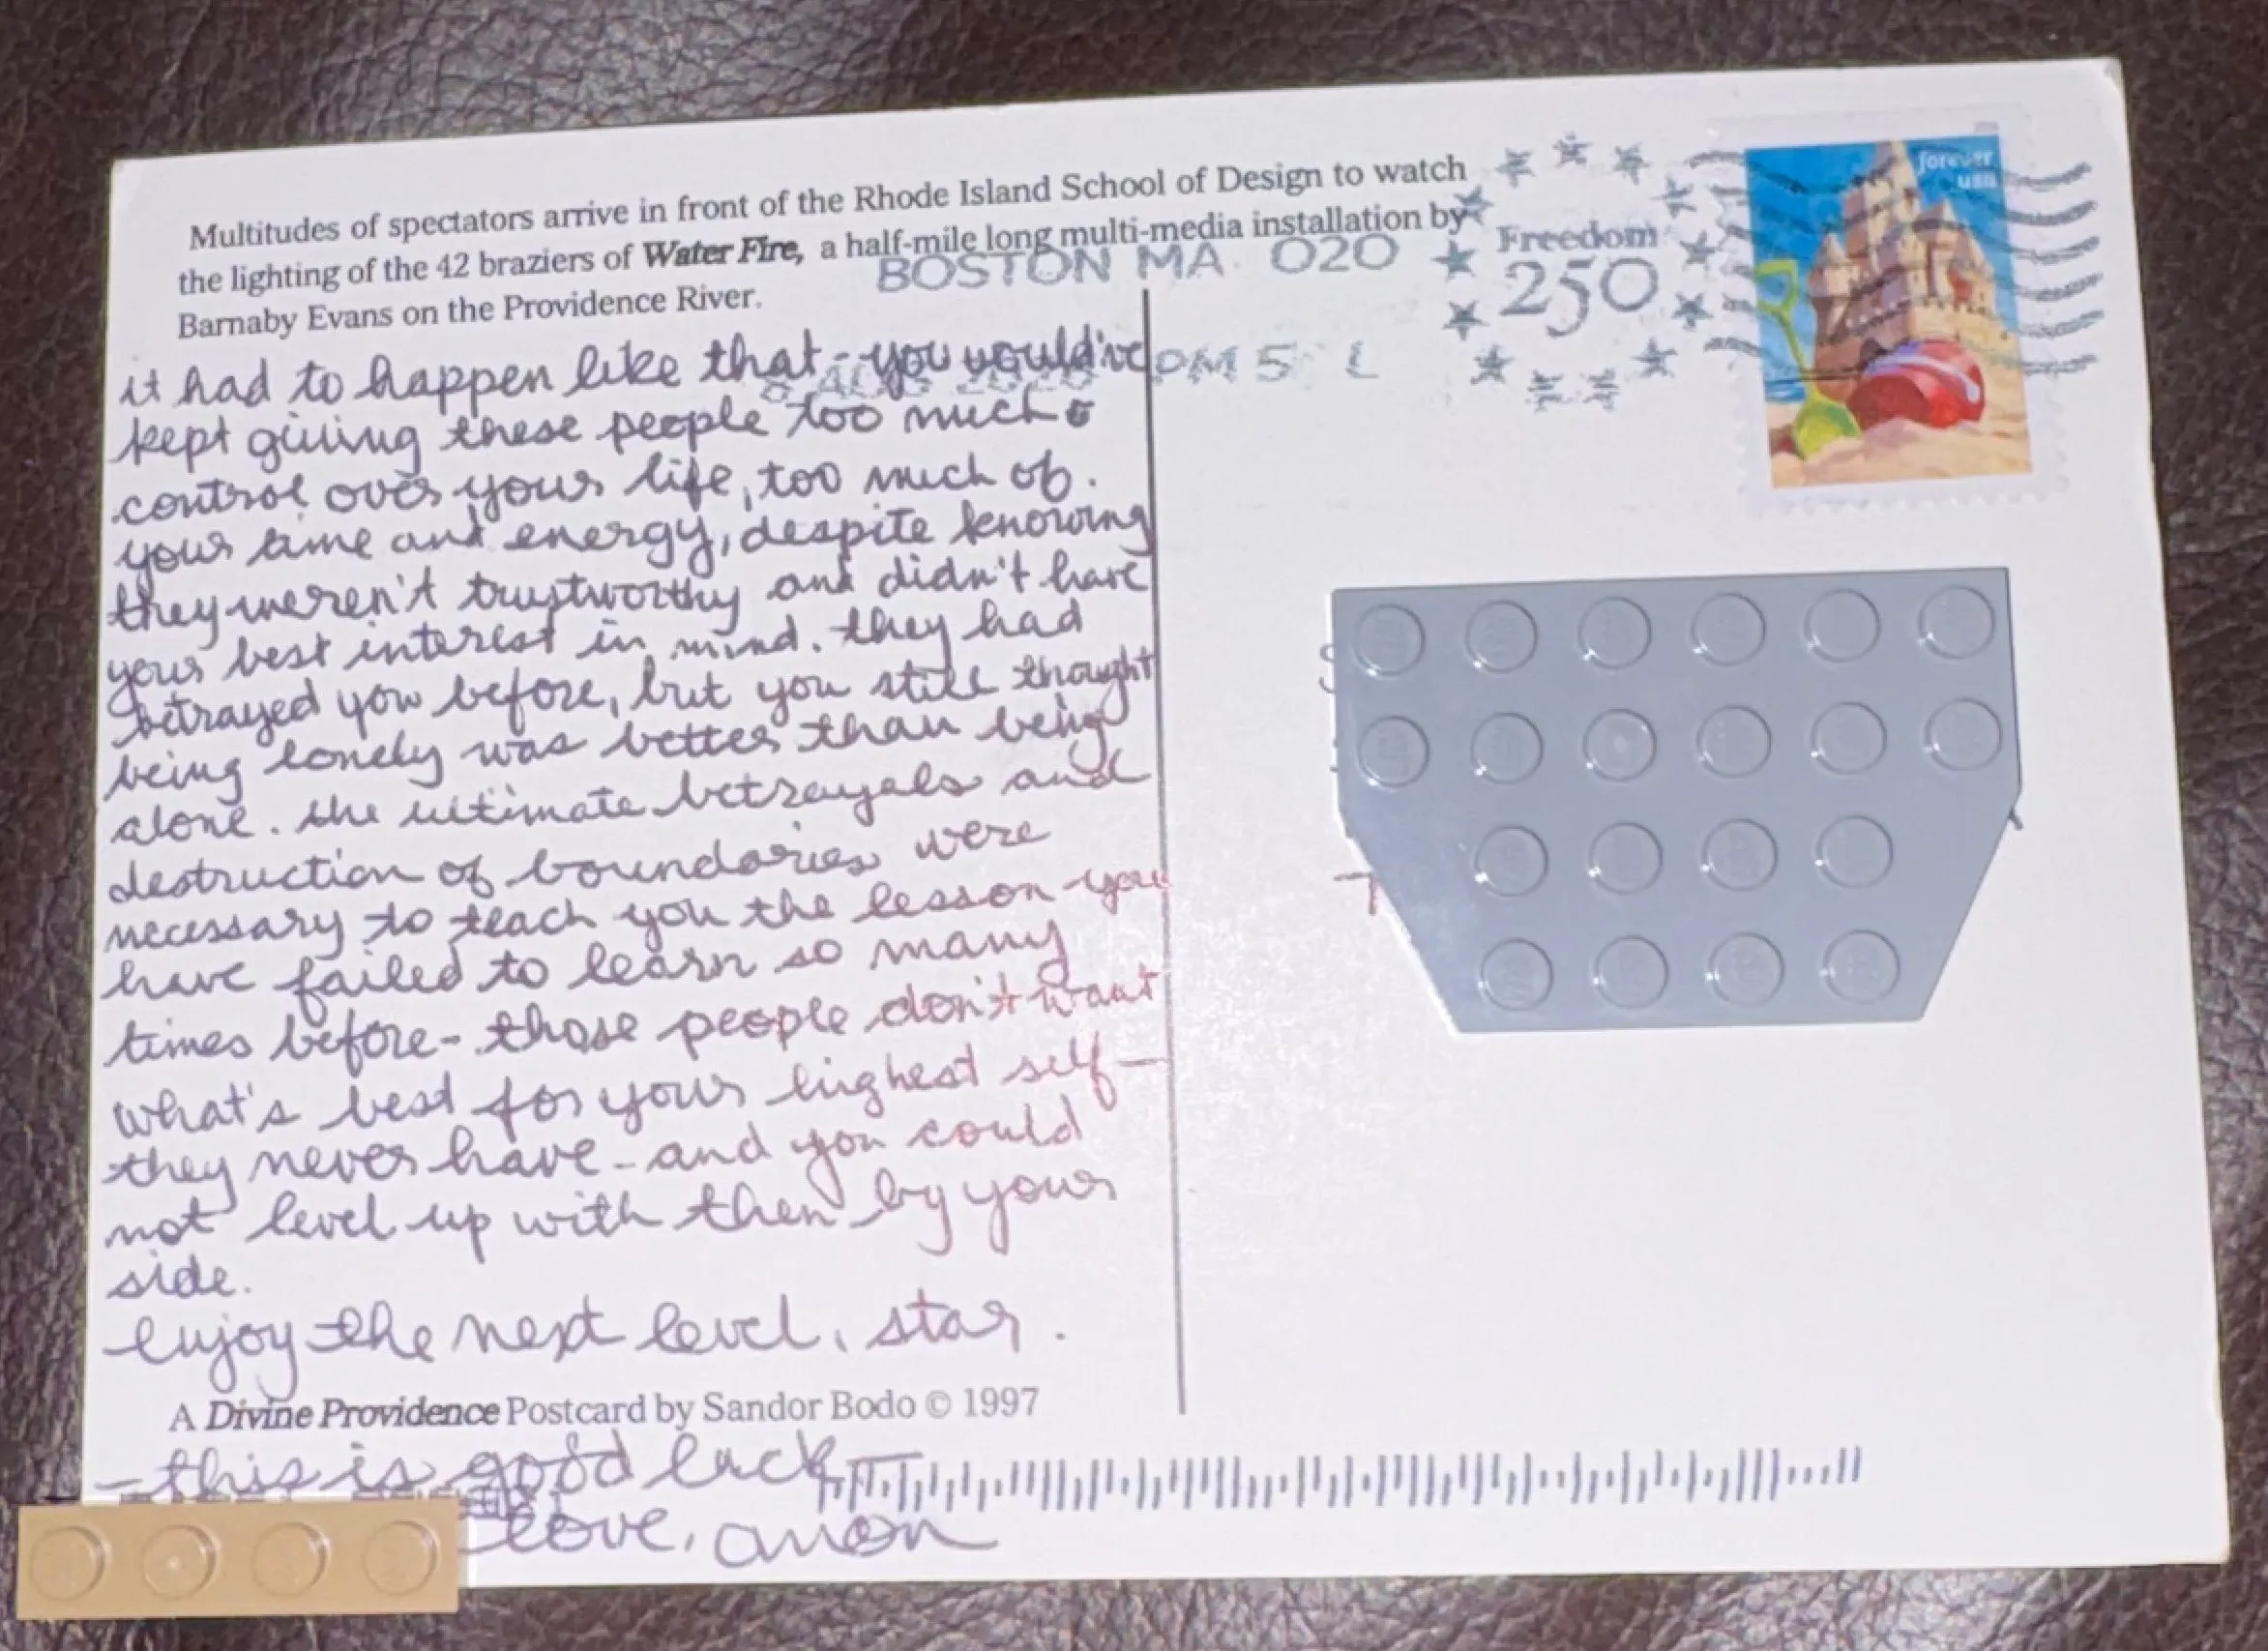 Multitudes of spectators arrive in front of the Rhode Island School of Design to watch
the lighting of the 42 braziers of Water Fire, a half-mile long multi-media installation by
Barnaby Evans on the Providence River.
forever
usa
Freedom
250
BOSTON MA 020
AUG PM 5 L
it had to happen like that - you would've
kept giving these people too much
control over your life, too much of
your time and energy, despite knowing
they weren't trustworthy and didn't have
your best interest in mind. they had
betrayed you before, but you still thought
being lonely was better than being
alone. the ultimate betrayals and
destruction of boundaries were
necessary to teach you the lesson you
have failed to learn so many
times before - those people don't want
what's best for your highest self -
they never have - and you could
not level up with then by your
side.
enjoy the next level, star.
A Divine Providence Postcard by Sandor Bodo © 1997
- this is good luck
love, anon